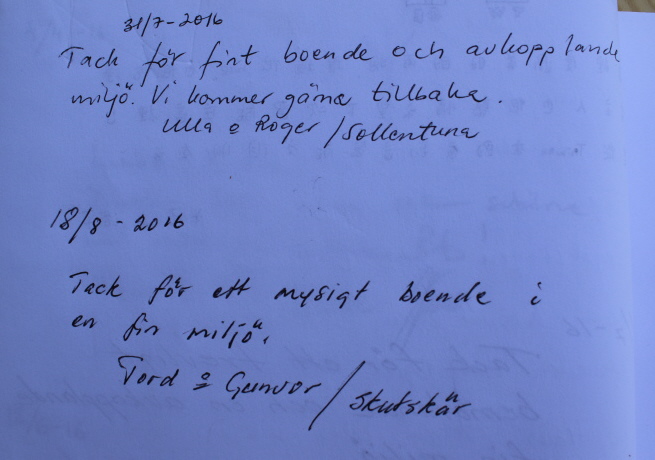 31/7-2016
Tack för fint boende och avkopplande
miljö. Vi kommer gärna tillbaka.
Ulla o Roger /Sollentuna
18/8 - 2016
Tack för ett mysigt boende i
en fin miljö.
Tord o Gunvor / Skutskär